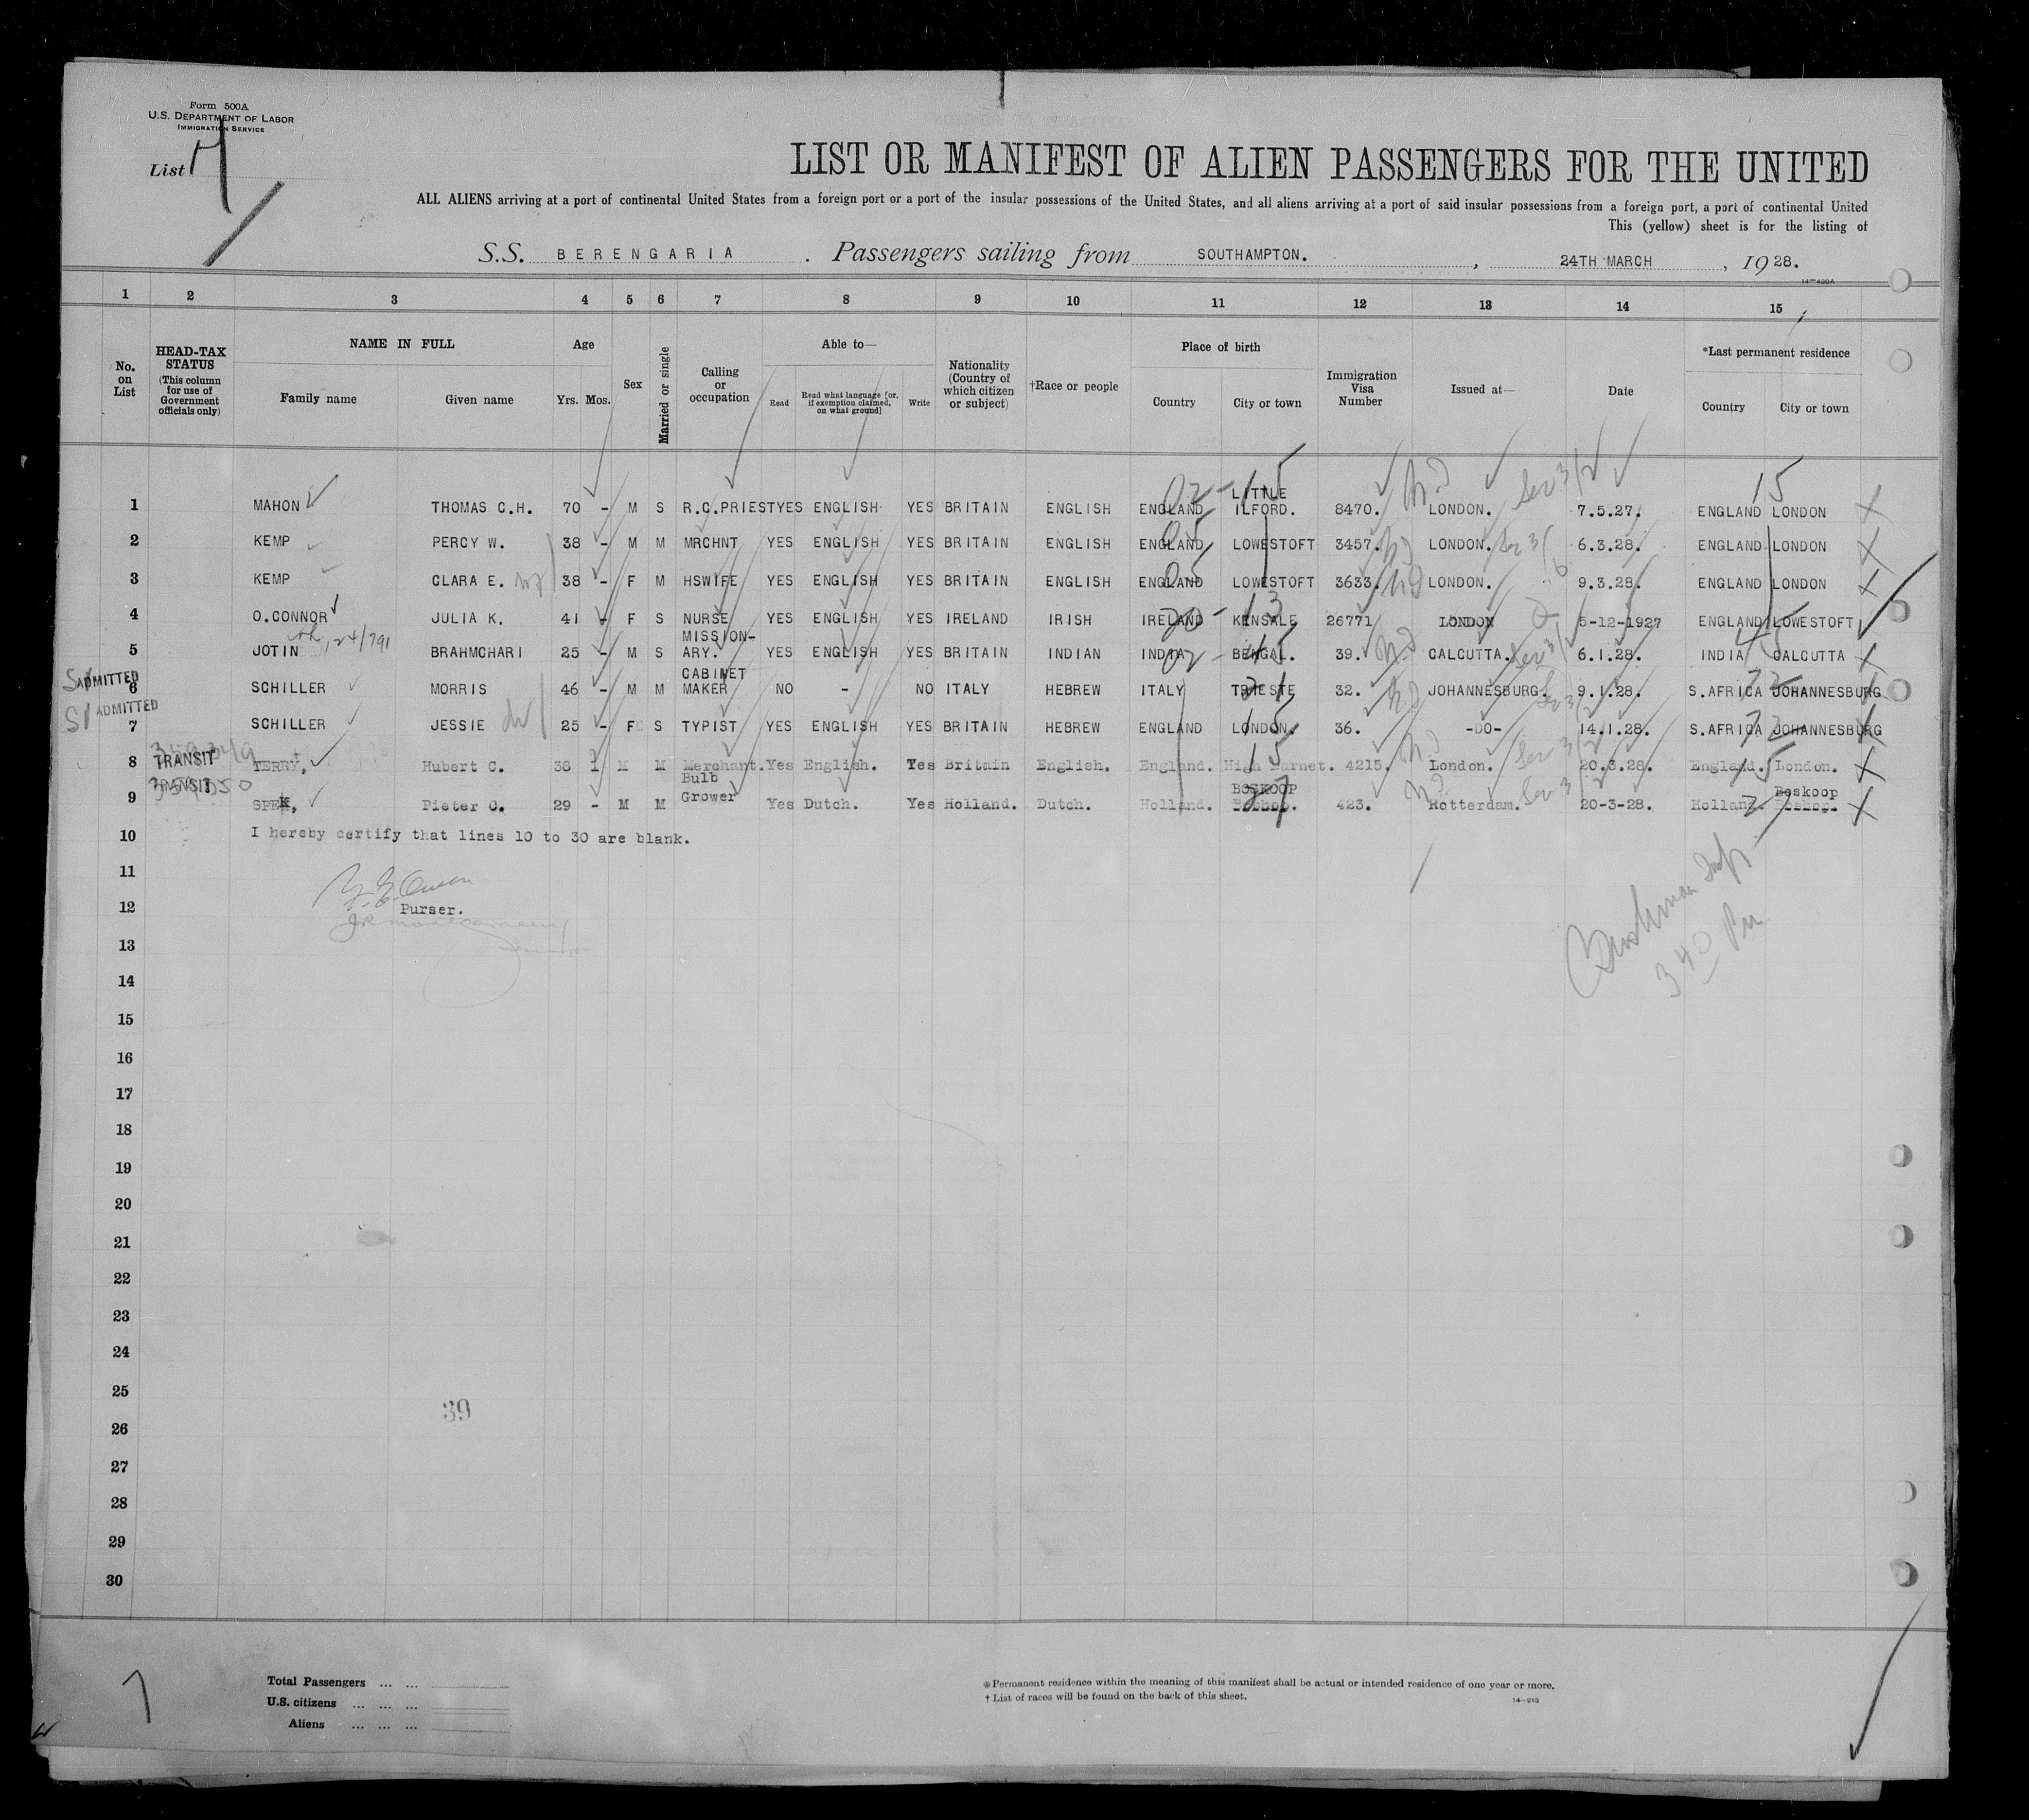 Form 500A
U.S. DEPARTMENT OF LABOR
IMMIGRATION SERVICE
List 7
LIST OR MANIFEST OF ALIEN PASSENGERS FOR THE UNITED
ALL ALIENS arriving at a port of continental United States from a foreign port or a port of the insular possessions of the United States, and all aliens arriving at a port of said insular possessions from a foreign port, a port of continental United
This (yellow) sheet is for the listing of
S.S. BERENGARIA. Passengers sailing from SOUTHAMPTON. , 24TH MARCH , 1928.
14—430A
1 2 3 4 5 6 7 8 9 10 11 12 13 14 15
No. on List
HEAD-TAX STATUS (This column for use of Government officials only)
NAME IN FULL
Family name Given name
Age
Yrs. Mos.
Sex
Married or single
Calling or occupation
Able to—
Read
Read what language [or, if exemption claimed, on what ground]
Write
Nationality (Country of which citizen or subject)
†Race or people
Place of birth
Country City or town
Immigration Visa Number
Issued at—
Date
*Last permanent residence
Country City or town
1 MAHON THOMAS C.H. 70 - M S R.C.PRIEST YES ENGLISH YES BRITAIN ENGLISH ENGLAND LITTLE ILFORD. 8470. LONDON. 7.5.27. ENGLAND LONDON
2 KEMP PERCY W. 38 - M M MRCHNT YES ENGLISH YES BRITAIN ENGLISH ENGLAND LOWESTOFT 3457. LONDON. 6.3.28. ENGLAND LONDON
3 KEMP CLARA E. 38 - F M HSWIFE YES ENGLISH YES BRITAIN ENGLISH ENGLAND LOWESTOFT 3633. LONDON. 9.3.28. ENGLAND LONDON
4 O.CONNOR JULIA K. 41 - F S NURSE YES ENGLISH YES IRELAND IRISH IRELAND KENSALE 26771 LONDON 5-12-1927 ENGLAND LOWESTOFT
124/791
5 JOTIN BRAHMCHARI 25 - M S MISSION-ARY. YES ENGLISH YES BRITAIN INDIAN INDIA BENGAL. 39. CALCUTTA. 6.1.28. INDIA CALCUTTA
SI ADMITTED
6 SCHILLER MORRIS 46 - M M CABINET MAKER NO - NO ITALY HEBREW ITALY TRIESTE 32. JOHANNESBURG. 9.1.28. S.AFRICA JOHANNESBURG
SI ADMITTED
7 SCHILLER JESSIE 25 - F S TYPIST YES ENGLISH YES BRITAIN HEBREW ENGLAND LONDON. 36. -DO- 14.1.28. S.AFRICA JOHANNESBURG
8 TRANSIT TERRY, Hubert C. 38 1 M M Merchant. Yes English. Yes Britain English. England. High Barnet. 4215. London. 20.3.28. England. London.
9 TRANSIT SPEK, Pieter C. 29 - M M Bulb Grower Yes Dutch. Yes Holland. Dutch. Holland. BOSKOOP 423. Rotterdam. 20-3-28. Holland. Boskoop
10 I hereby certify that lines 10 to 30 are blank.
11
12 Purser.
13
14
15
16
17
18
19
20
21
22
23
24
25
39
26
27
28
29
30
340 Pm
Total Passengers ... ...
U.S. citizens ... ... ...
Aliens ... ... ...
*Permanent residence within the meaning of this manifest shall be actual or intended residence of one year or more.
† List of races will be found on the back of this sheet.
14—213